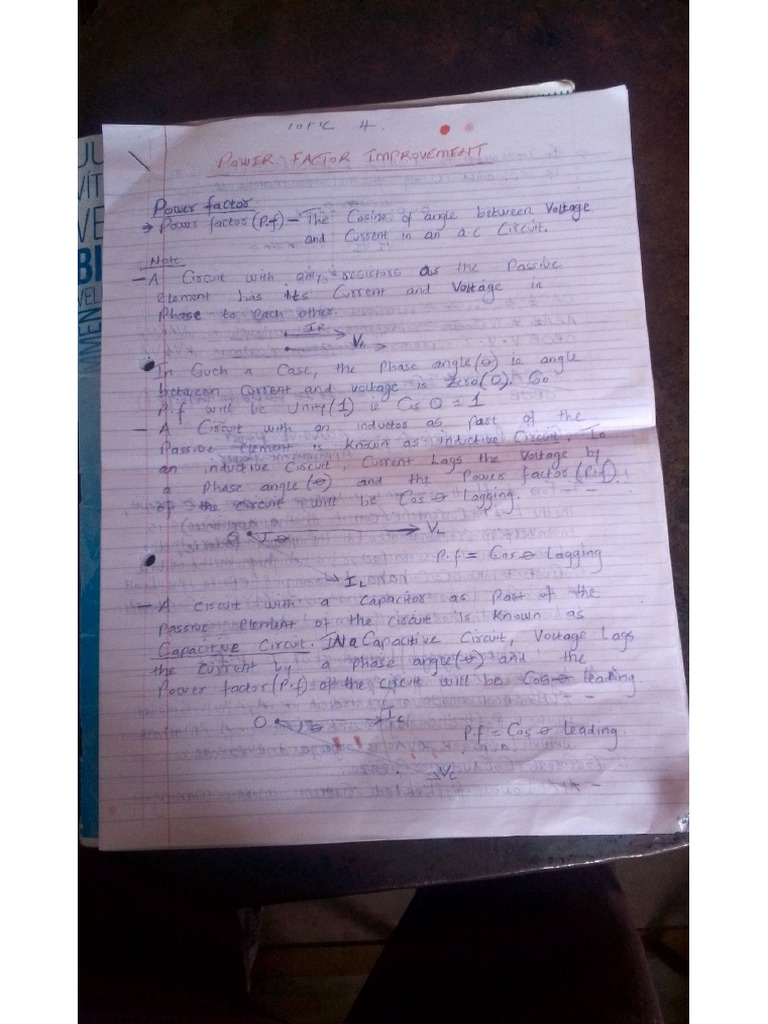 TOPIC 4.
POWER FACTOR IMPROVEMENT
Power factor
→ Power factor (P.f) - The Cosine of angle between Voltage
and Current in an a.c Circuit.
Note
- A Circuit with only resistors as the Passive
element has its Current and Voltage in
Phase to each other.
IR
VR
In Such a Case, the Phase angle (θ) ie angle
between Current and voltage is Zero (0). So
P.f will be Unity (1) ie Cos 0 = 1
- A Circuit with an inductor as part of the
Passive element is known as inductive Circuit. In
an inductive Circuit, Current Lags the Voltage by
a Phase angle (θ) and the Power factor (P.f)
of the circuit will be Cos θ Lagging.
O θ VL
P.f = Cos θ Lagging
IL
- A circuit with a Capacitor as Part of the
Passive element of the circuit is known as
Capacitive Circuit. IN a Capacitive Circuit, Voltage Lags
the current by a phase angle (θ) and the
Power factor (P.f) of the circuit will be Cos θ leading.
O θ IC
P.f = Cos θ leading.
VC
JU
VÍT
VE
BI
VEL
MMEN